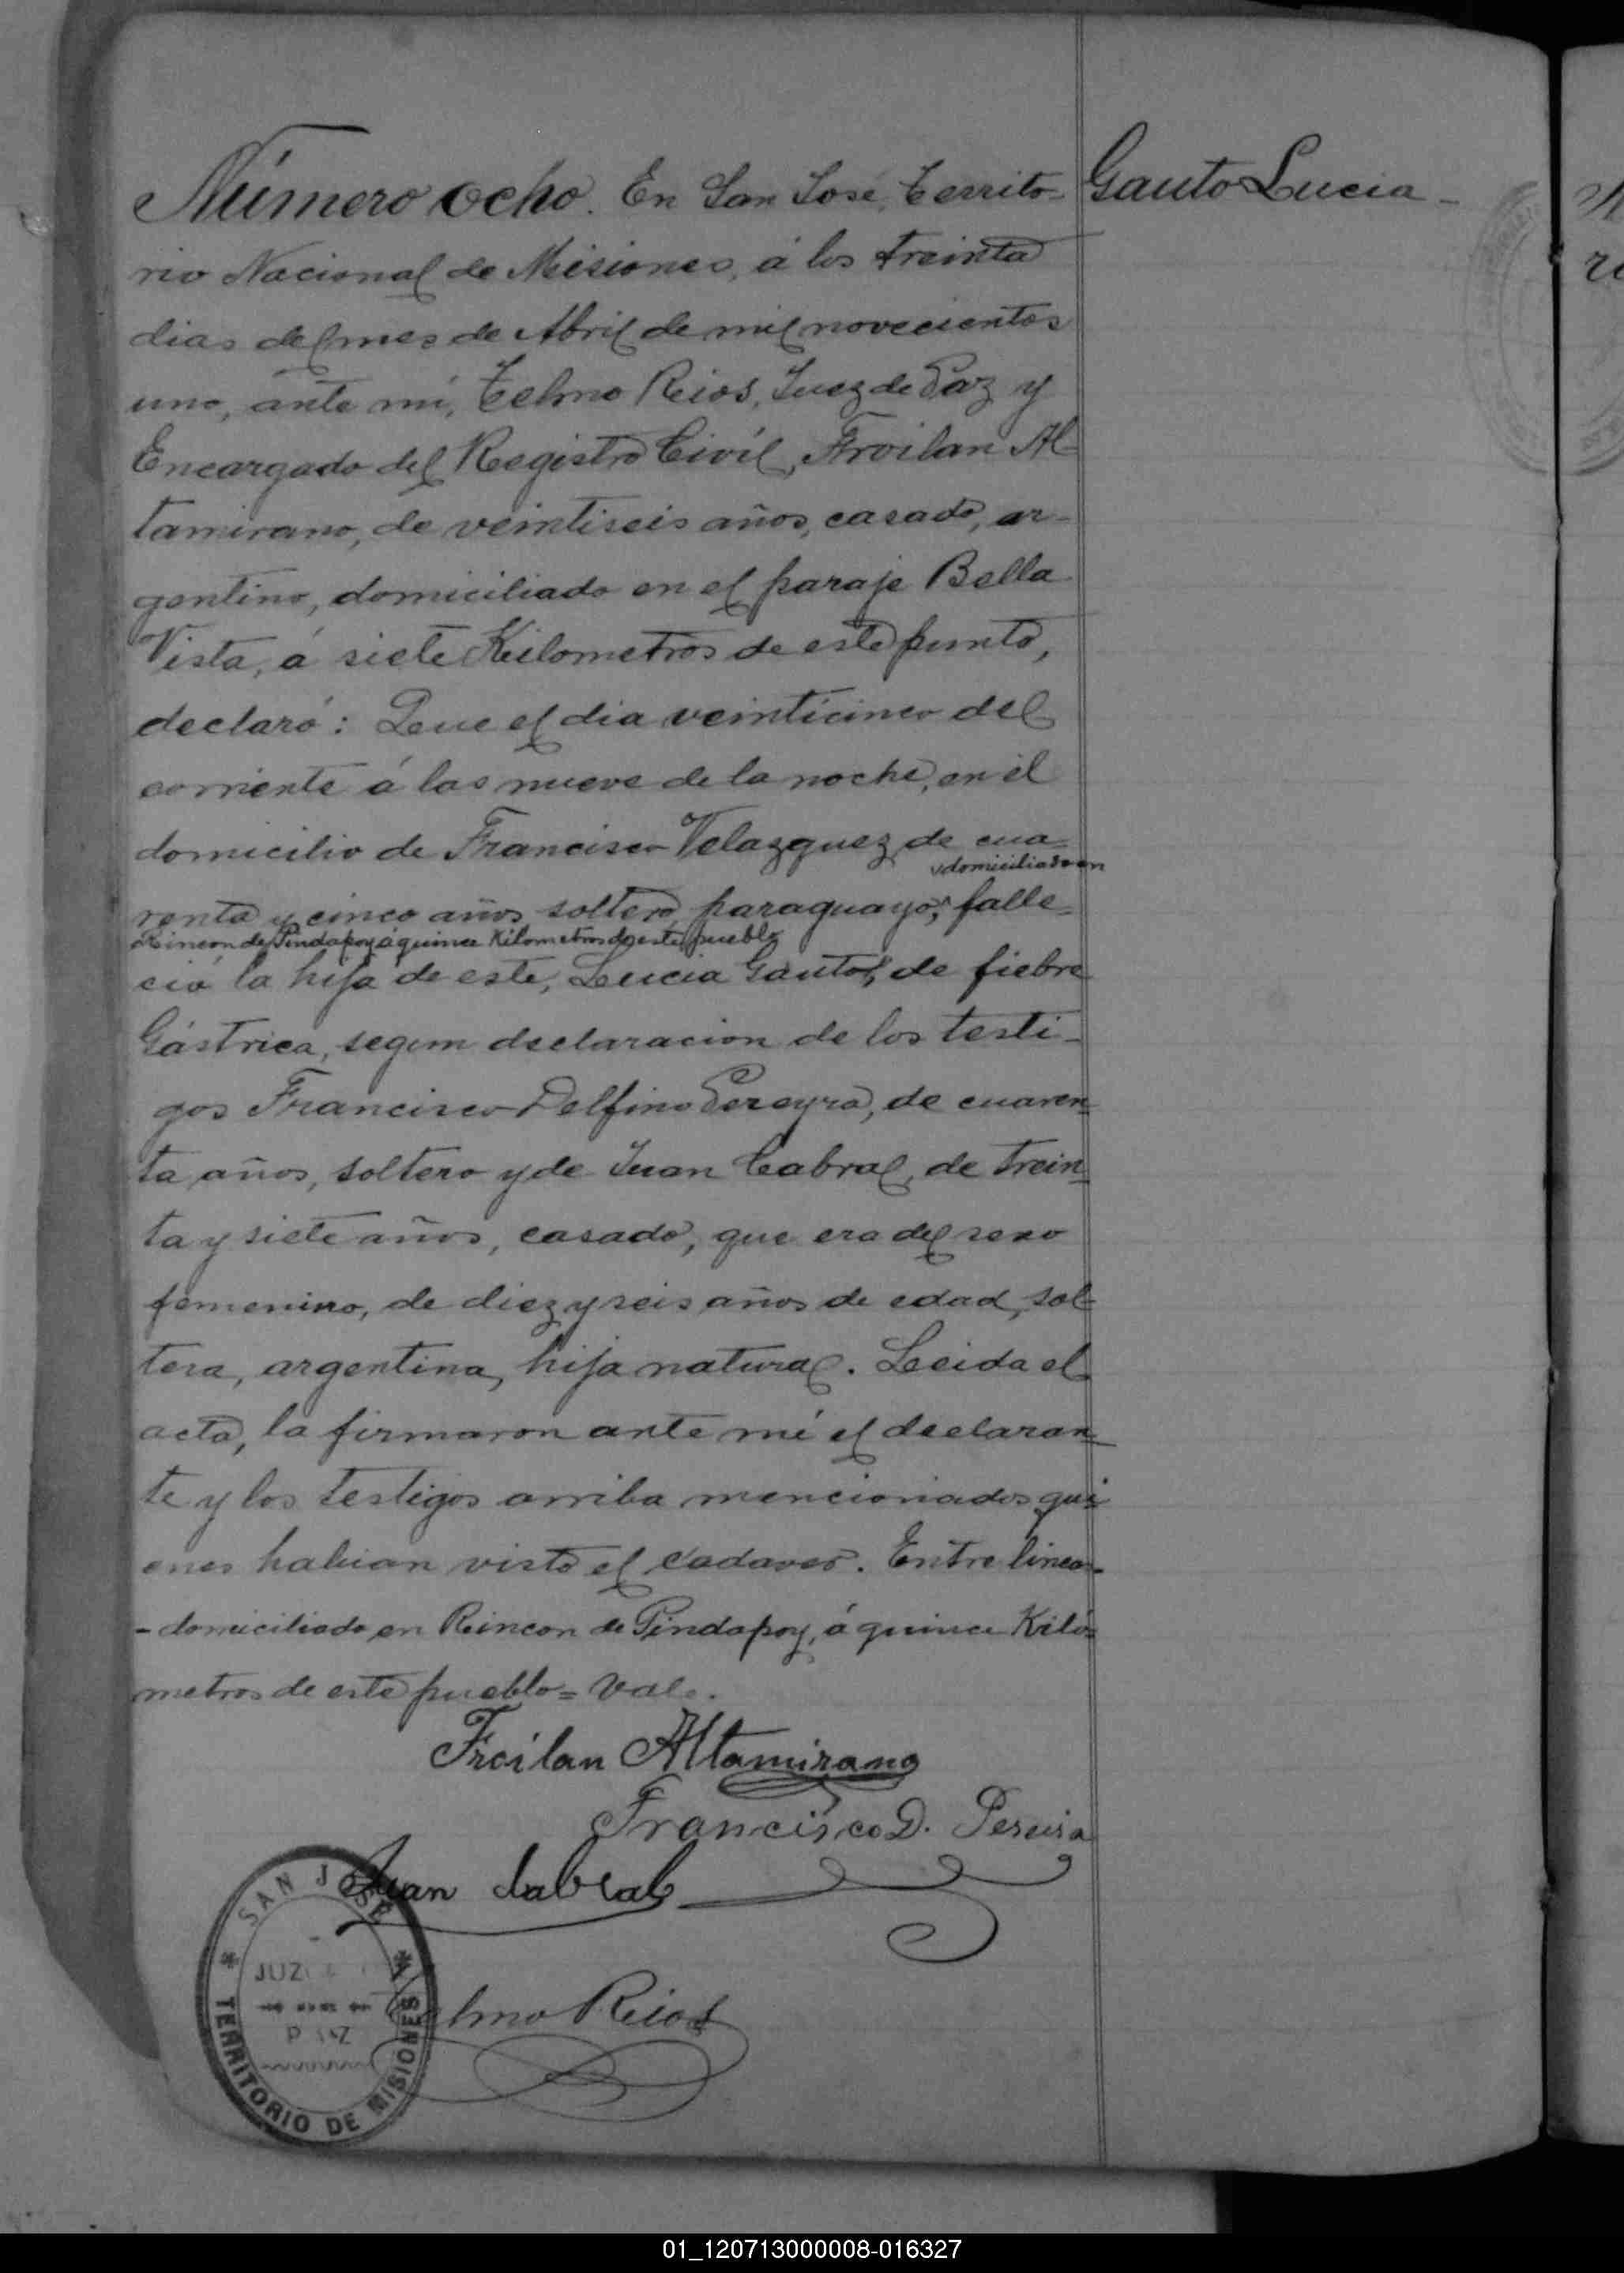 Número ocho. En San José, Territo-
Gauto Lucia -
rio Nacional de Misiones, á los treinta
dias del mes de Abril de mil novecientos
uno, ante mí, Telmo Rios, Juez de Paz y
Encargado del Registro Civíl, Froilan Al-
tamirano, de veintiseis años, casado, ar-
gentino, domiciliado en el paraje Bella
Vista, á siete Kilometros de este punto,
declaró: Que el dia veinticinco del
corriente á las nueve de la noche, en el
domicilio de Francisco Velazquez de cua-
domiciliado en
renta y cinco años, soltero, paraguayo, falle-
Rincon de Pindapoy á quince Kilometros de este pueblo
ció la hija de este, Lucia Gauto, de fiebre
Gástrica, segun declaracion de los testi-
gos Francisco Delfino Pereyra, de cuaren-
ta años, soltero y de Juan Cabral, de trein-
ta y siete años, casado, que era del sexo
femenino, de diez y seis años de edad, sol-
tera, argentina, hija natural. Leida el
acta, la firmaron ante mí el declaran-
te y los testigos arriba mencionados qui-
enes habian visto el cadaver. Entre lineas-
- domiciliado en Rincon de Pindapoy, á quince Kiló-
metros de este pueblo = Vale.
Froilan Altamirano
Francisco D. Pereira
Juan Cabral
Telmo Rios
SAN JOSÉ
JUZ
PAZ
TERRITORIO DE MISIONES
01_120713000008-016327